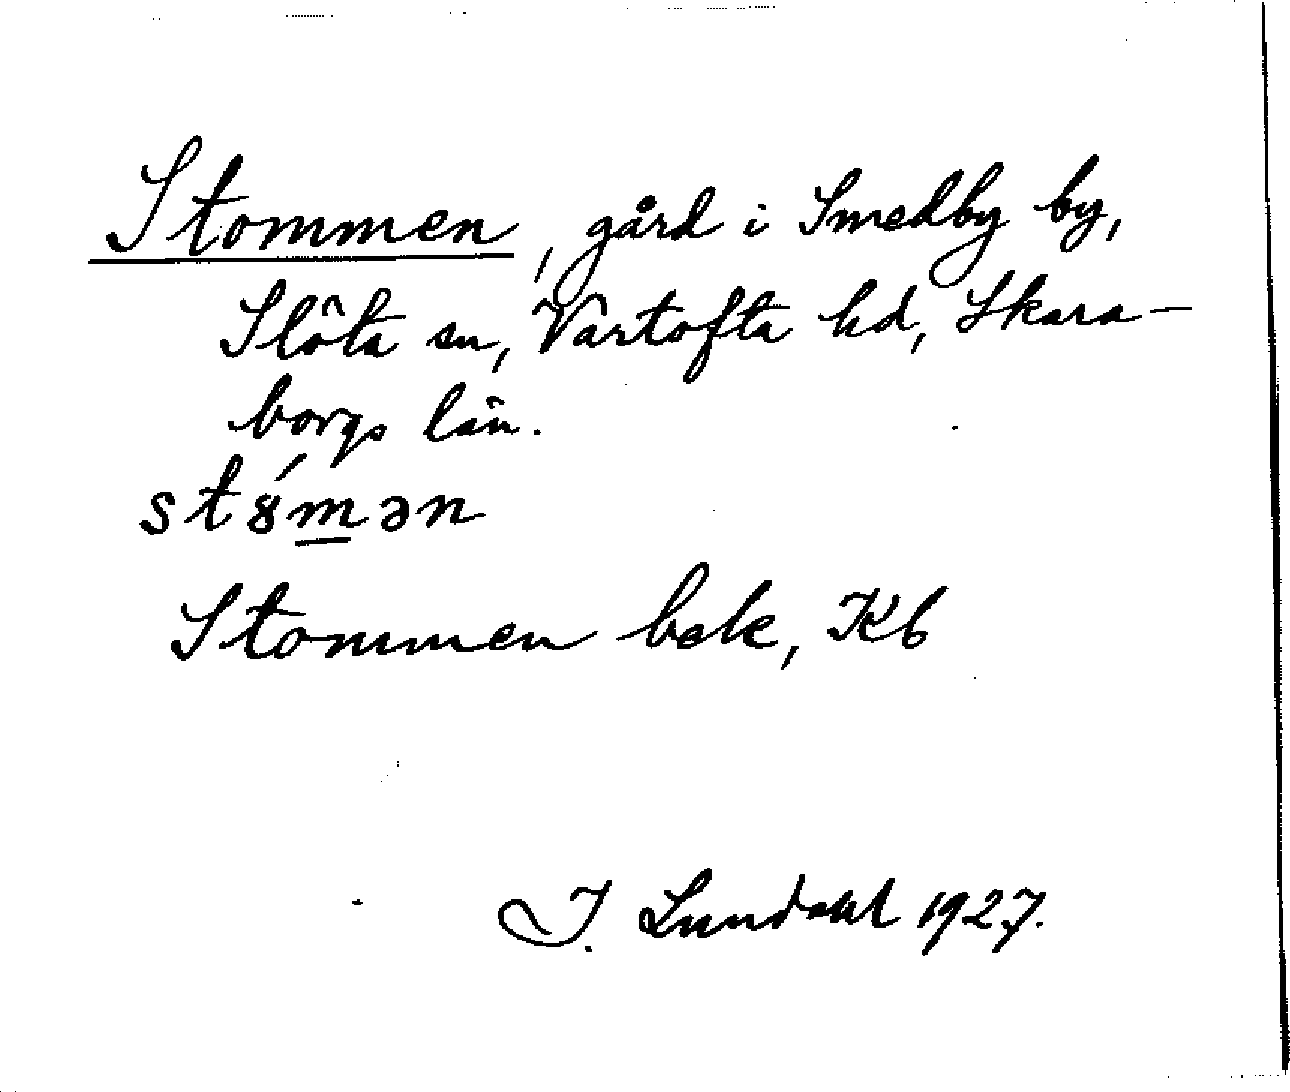 Stommen, gård i Smedby by,
Slöta sn, Vartofta hd, Skara-
borgs län.
st8́mən
Stommen bek, Kb
I. Lundahl 1927.